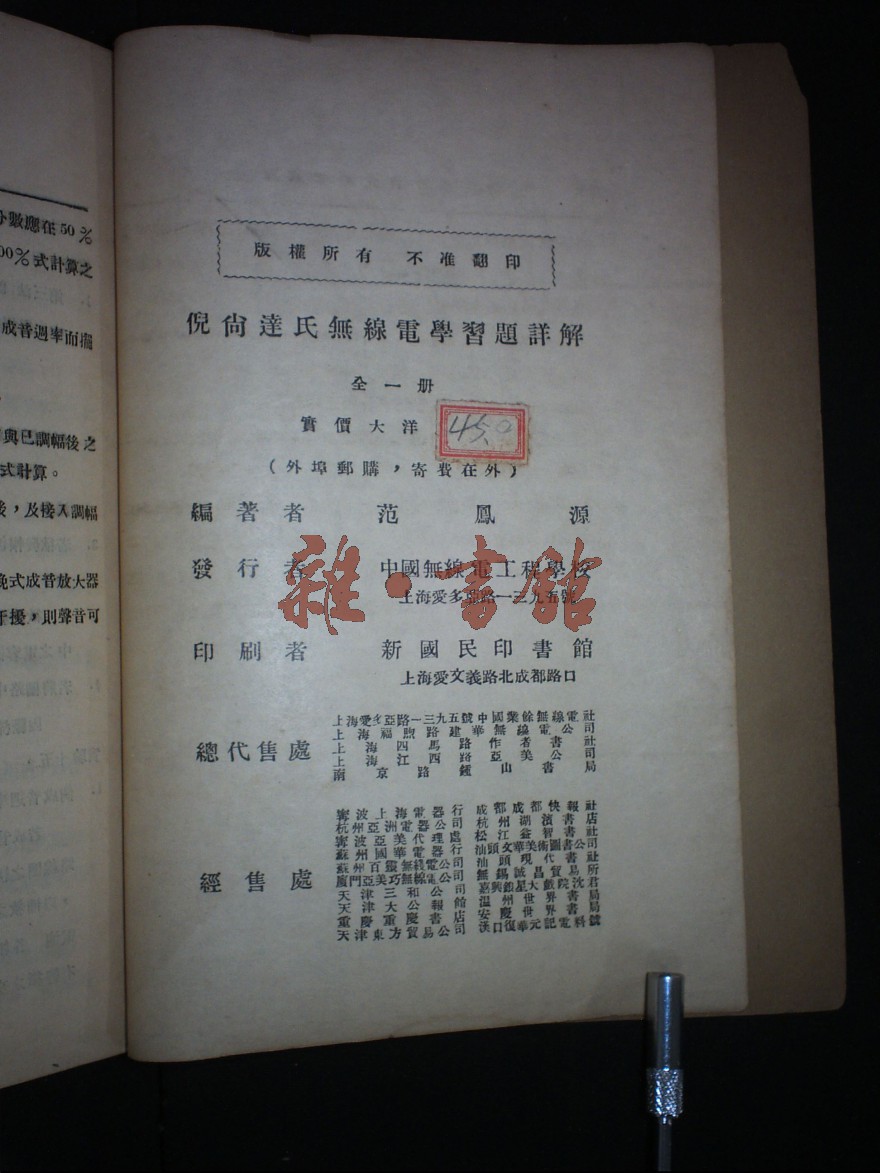 分數應在50%
00%式計算之
成音週率而擴
與已調幅後之
式計算。
後，及接入調幅
俛式成音放大器
干擾，則聲音可
版權所有 不准翻印
倪尙達氏無線電學習題詳解
全一册
實價大洋
45.0
（外埠郵購，寄費在外）
編著者 范鳳源
發行者 中國無線電工程學校
上海愛多亞路一三九五號
雜·書館
印刷者 新國民印書館
上海愛文義路北成都路口
總代售處
上海愛多亞路一三九五號中國業餘無線電社
上海福煦路建華無線電公司
上海四馬路作者書社
上海江西路亞美公司
南京路鍾山書局
經售處
寗波上海電器行 成都成都快報社
杭州亞洲電器公司 杭州湖濱書店
寗波亞美代理處 松江益智書社
蘇州國華電器行 汕頭文華美術圖書公司
蘇州百靈無綫電公司 汕頭現代書社
廈門亞美巧無線電公司 無錫誠昌貿易所
天津三和公司 嘉興銀星大戲院沈君
天津大公報館 温州世界書局
重慶重慶書店 安慶世界書局
天津東方貿易公司 漢口復華元記電料號